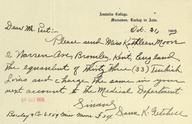 Anatolia College,
Marsovan, Turkey in Asia.
Oct. 21, 19
Dear Mr. Peet:-
Please send Miss Kathleen Moore
2 Warren Ave, Bromley, Kent, England
the equivalent of thirty three (33) Turkish
liras and charge the same in your
next account to the Medical Department
Sincerely
Dana K. Getchell